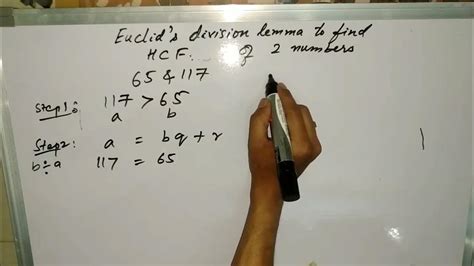 Euclid's division lemma to find
HCF of 2 numbers
65 & 117
Step1: 117 > 65
a b
Step2: a = bq + r
b÷a 117 = 65